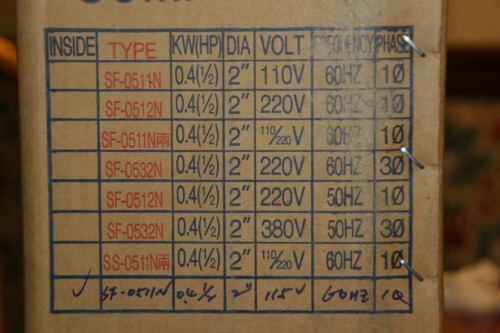 INSIDE TYPE KW(HP) DIA VOLT FREQUENCY PHASE
SF-0511N 0.4(½) 2" 110V 60HZ 1Ø
SF-0512N 0.4(½) 2" 220V 60HZ 1Ø
SF-0511N兩 0.4(½) 2" 110/220V 60HZ 1Ø
SF-0532N 0.4(½) 2" 220V 60HZ 3Ø
SF-0512N 0.4(½) 2" 220V 50HZ 1Ø
SF-0532N 0.4(½) 2" 380V 50HZ 3Ø
SS-0511N兩 0.4(½) 2" 110/220V 60HZ 1Ø
✓ SF-0511N 0.4 ½ 2" 115V 60HZ 1Ø